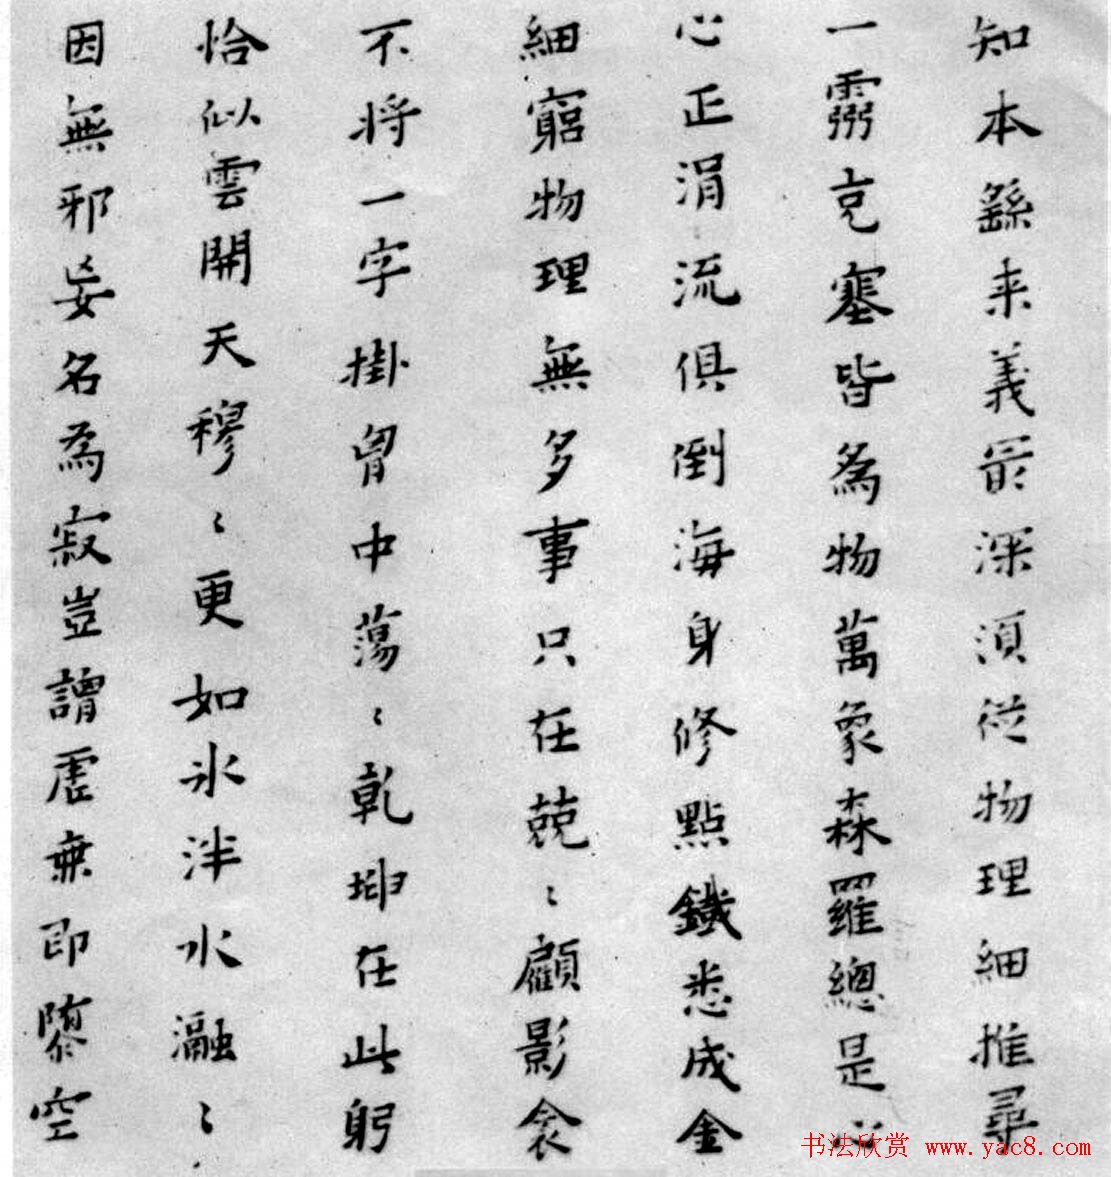 知本繇来義冣深須從物理細推尋
一霛充塞皆為物萬象森羅總是心
心正涓流俱倒海身修點鐵悉成金
細窮物理無多事只在兢〻顧影衾
不將一字掛胷中蕩〻乾坤在此躬
恰似雲開天穆〻更如氷泮水瀜〻
因無邪妄名為寂豈謂虛無即墮空
书法欣赏 www.yac8.com